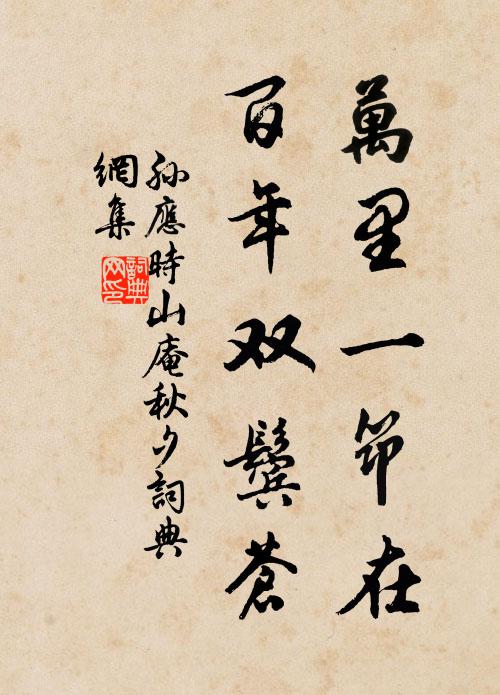 萬里一筇在
百年双鬓蒼
孫應時山庵秋夕詞典
網集
詞典
网印